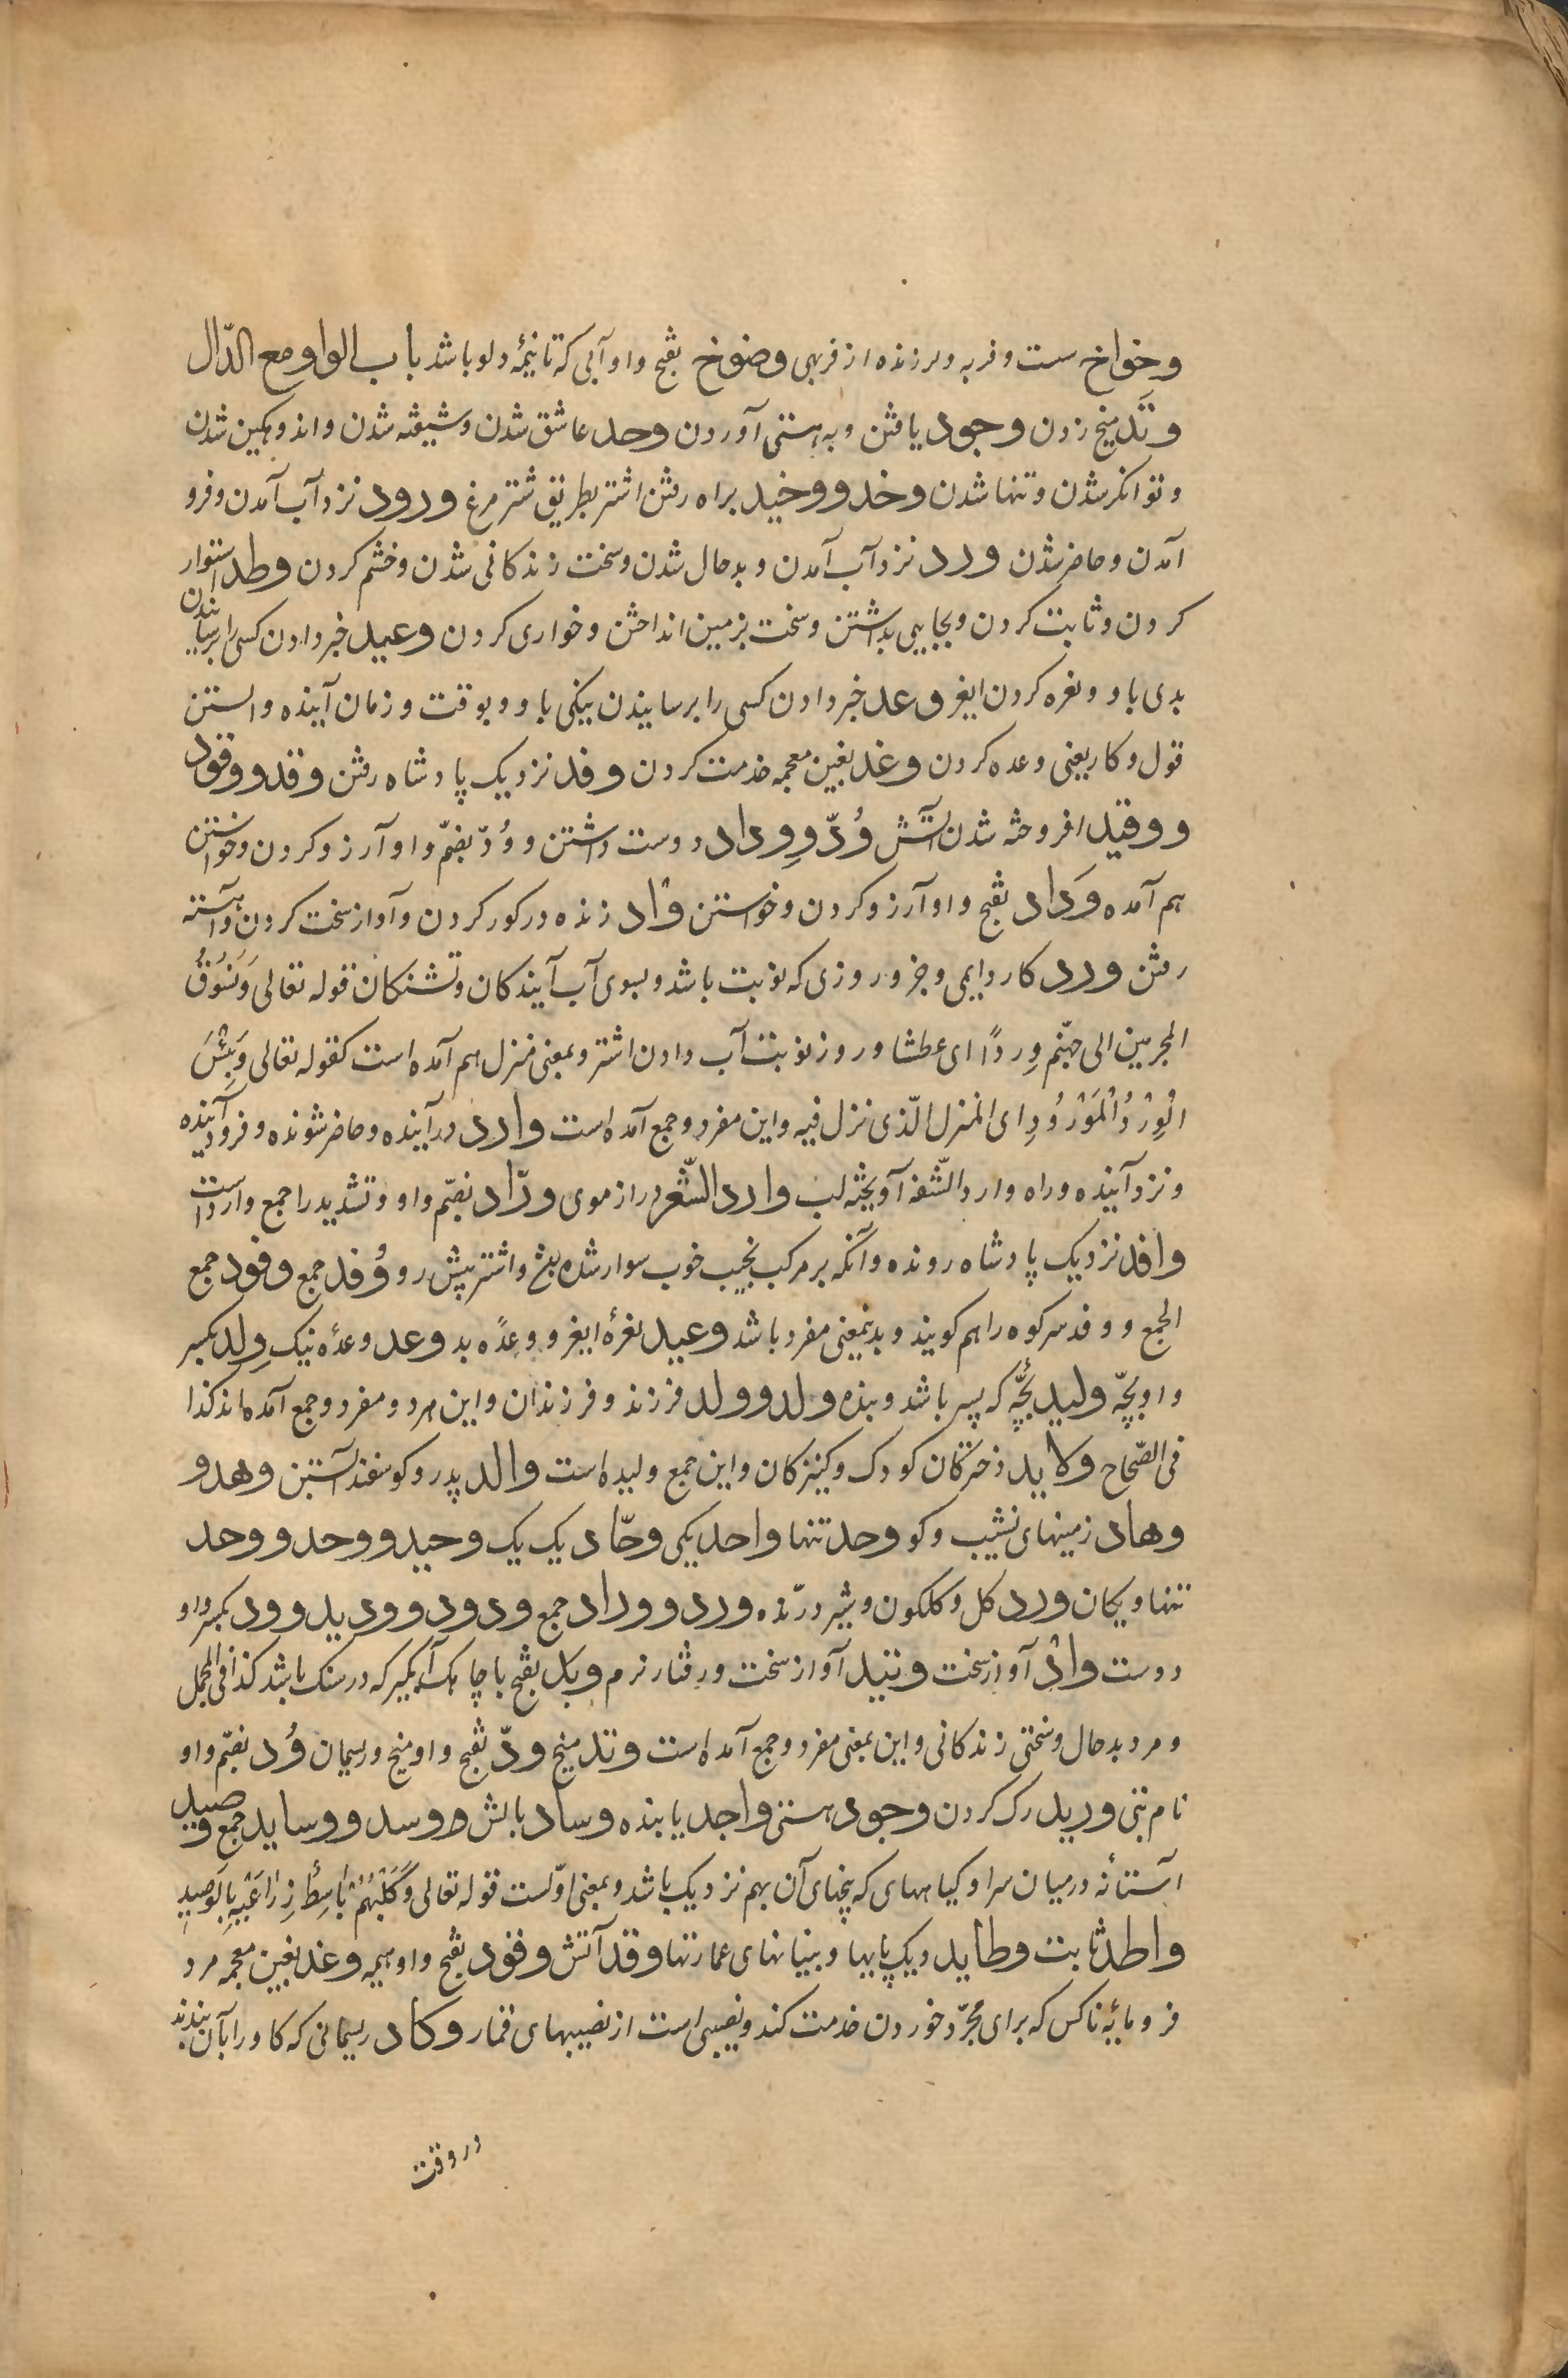 وخواخ سست و فربه و لرزنده از فربهی وضوخ بفتح واو آبی که تا نیمهٔ دلو باشد باب الواو مع الدّال
وَتَد میخ زدن وجود یافتن و به هستی آوردن وجد عاشق شدن و شیفته شدن و اندوهکین شدن
و توانکر شدن و تنها شدن وخد و وخید براه رفتن اشتر بطریق شتر مرغ ورود نزد آب آمدن و فرو
آمدن و حاضر شدن ورد نزد آب آمدن و بد حال شدن و سخت زندکانی شدن و خشم کردن وطد استوار
کردن و ثابت کردن و بجایی بداشتن و سخت بزمین انداختن و خواری کردن وعید خبر دادن کسی را برسانیدن
بدی باو و نعره کردن ایغر وعد خبر دادن کسی را برسانیدن نیکی باو و بوقت و زمان آینده وابستن
قول و کار یعنی وعده کردن وغد بغین معجمه خدمت کردن وفد نزدیک پادشاه رفتن وقد و وقود
و وقید افروخته شدن آتش وُدّ و وِداد دوست داشتن و وُدّ بضمّ واو آرزو کردن و خواستن
هم آمده وَداد بفتح واو آرزو کردن و خواستن وَاْد زنده در کور کردن و آواز سخت کردن و آهسته
رفتن ورد کار دایمی و جزو روزی که نوبت باشد و بسوی آب آیندکان و تشنکان قوله تعالی وَنَسُوقُ
المجرمین الی جهنّم وِردًا ای عطشا و روز نوبت آب دادن اشتر و بمعنی منزل هم آمده است کقوله تعالی وَبِئْسَ
الْوِرْدُ الْمَوْرُودِ ای المنزل الّذی نزل فیه و این مفرد و جمع آمده است وارد درآینده و حاضر شونده و فرود آینده
و نزد آینده و راه وارد الشّفة آویخته لب وارد الشّعر دراز موی ورّاد بضمّ واو و تشدید را جمع وارد است
وافد نزدیک پادشاه رونده و آنکه بر مرکب نجیب خوب سوار شده و اشتر پیش رو وُفد جمع وفود جمع
الجمع و وفد سر کوه را هم کویند و بدینمعنی مفرد باشد وعید نعرهٔ ایغر و وعدهٔ بد وعد وعدهٔ نیک وِلد بکسر
واو بچّه ولید بچّه که پسر باشد و بنده ولد و وُلد فرزند و فرزندان و این هر دو مفرد و جمع آمده‌اند کذا
فی الصّحاح ولاید دخترکان کودک و کنیزکان و این جمع ولیده است والد پدر و کوسفند آبستن وهد و
وهاد زمینهای نشیب و کو وحد تنها واحد یکی وحّاد یک یک وحید و وحد و وحد
تنها و یکان ورد کل و کلکون و شیر درّنده ورد و وراد جمع ودود و ودید و ود بکسر واو
دوست واْد آواز سخت وئید آواز سخت و رفتار نرم وبد بفتح با چاهک آبکیر که در سنک باشد کذا فی المجمل
و مرد بد حال و سختی زندکانی و این بمعنی مفرد و جمع آمده است وتد میخ ودّ بفتح واو میخ و ریسمان وُد بضمّ واو
نام بتی ورید رک کردن وجود هستی واجد یابنده وساد بالش و وسد و وساید جمع وصید
آستانه در میان سرا و کیاههای که بیخهای آن بهم نزدیک باشد و بمعنی اوّلست قوله تعالی وَکَلْبُهُمْ بَاسِطٌ ذِرَاعَیْهِ بِالْوَصِیدِ
واطد ثابت وطاید دیک پایها و بنیانهای عمارتها وقد آتش وقود بفتح واو هیمه وغد بغین معجمه مرد
فرومایهٔ ناکس که برای مجرّد خوردن خدمت کند و نصیبی است از نصیبهای قمار وکاد ریسمانی که کاو را بآن بندند
در وقت